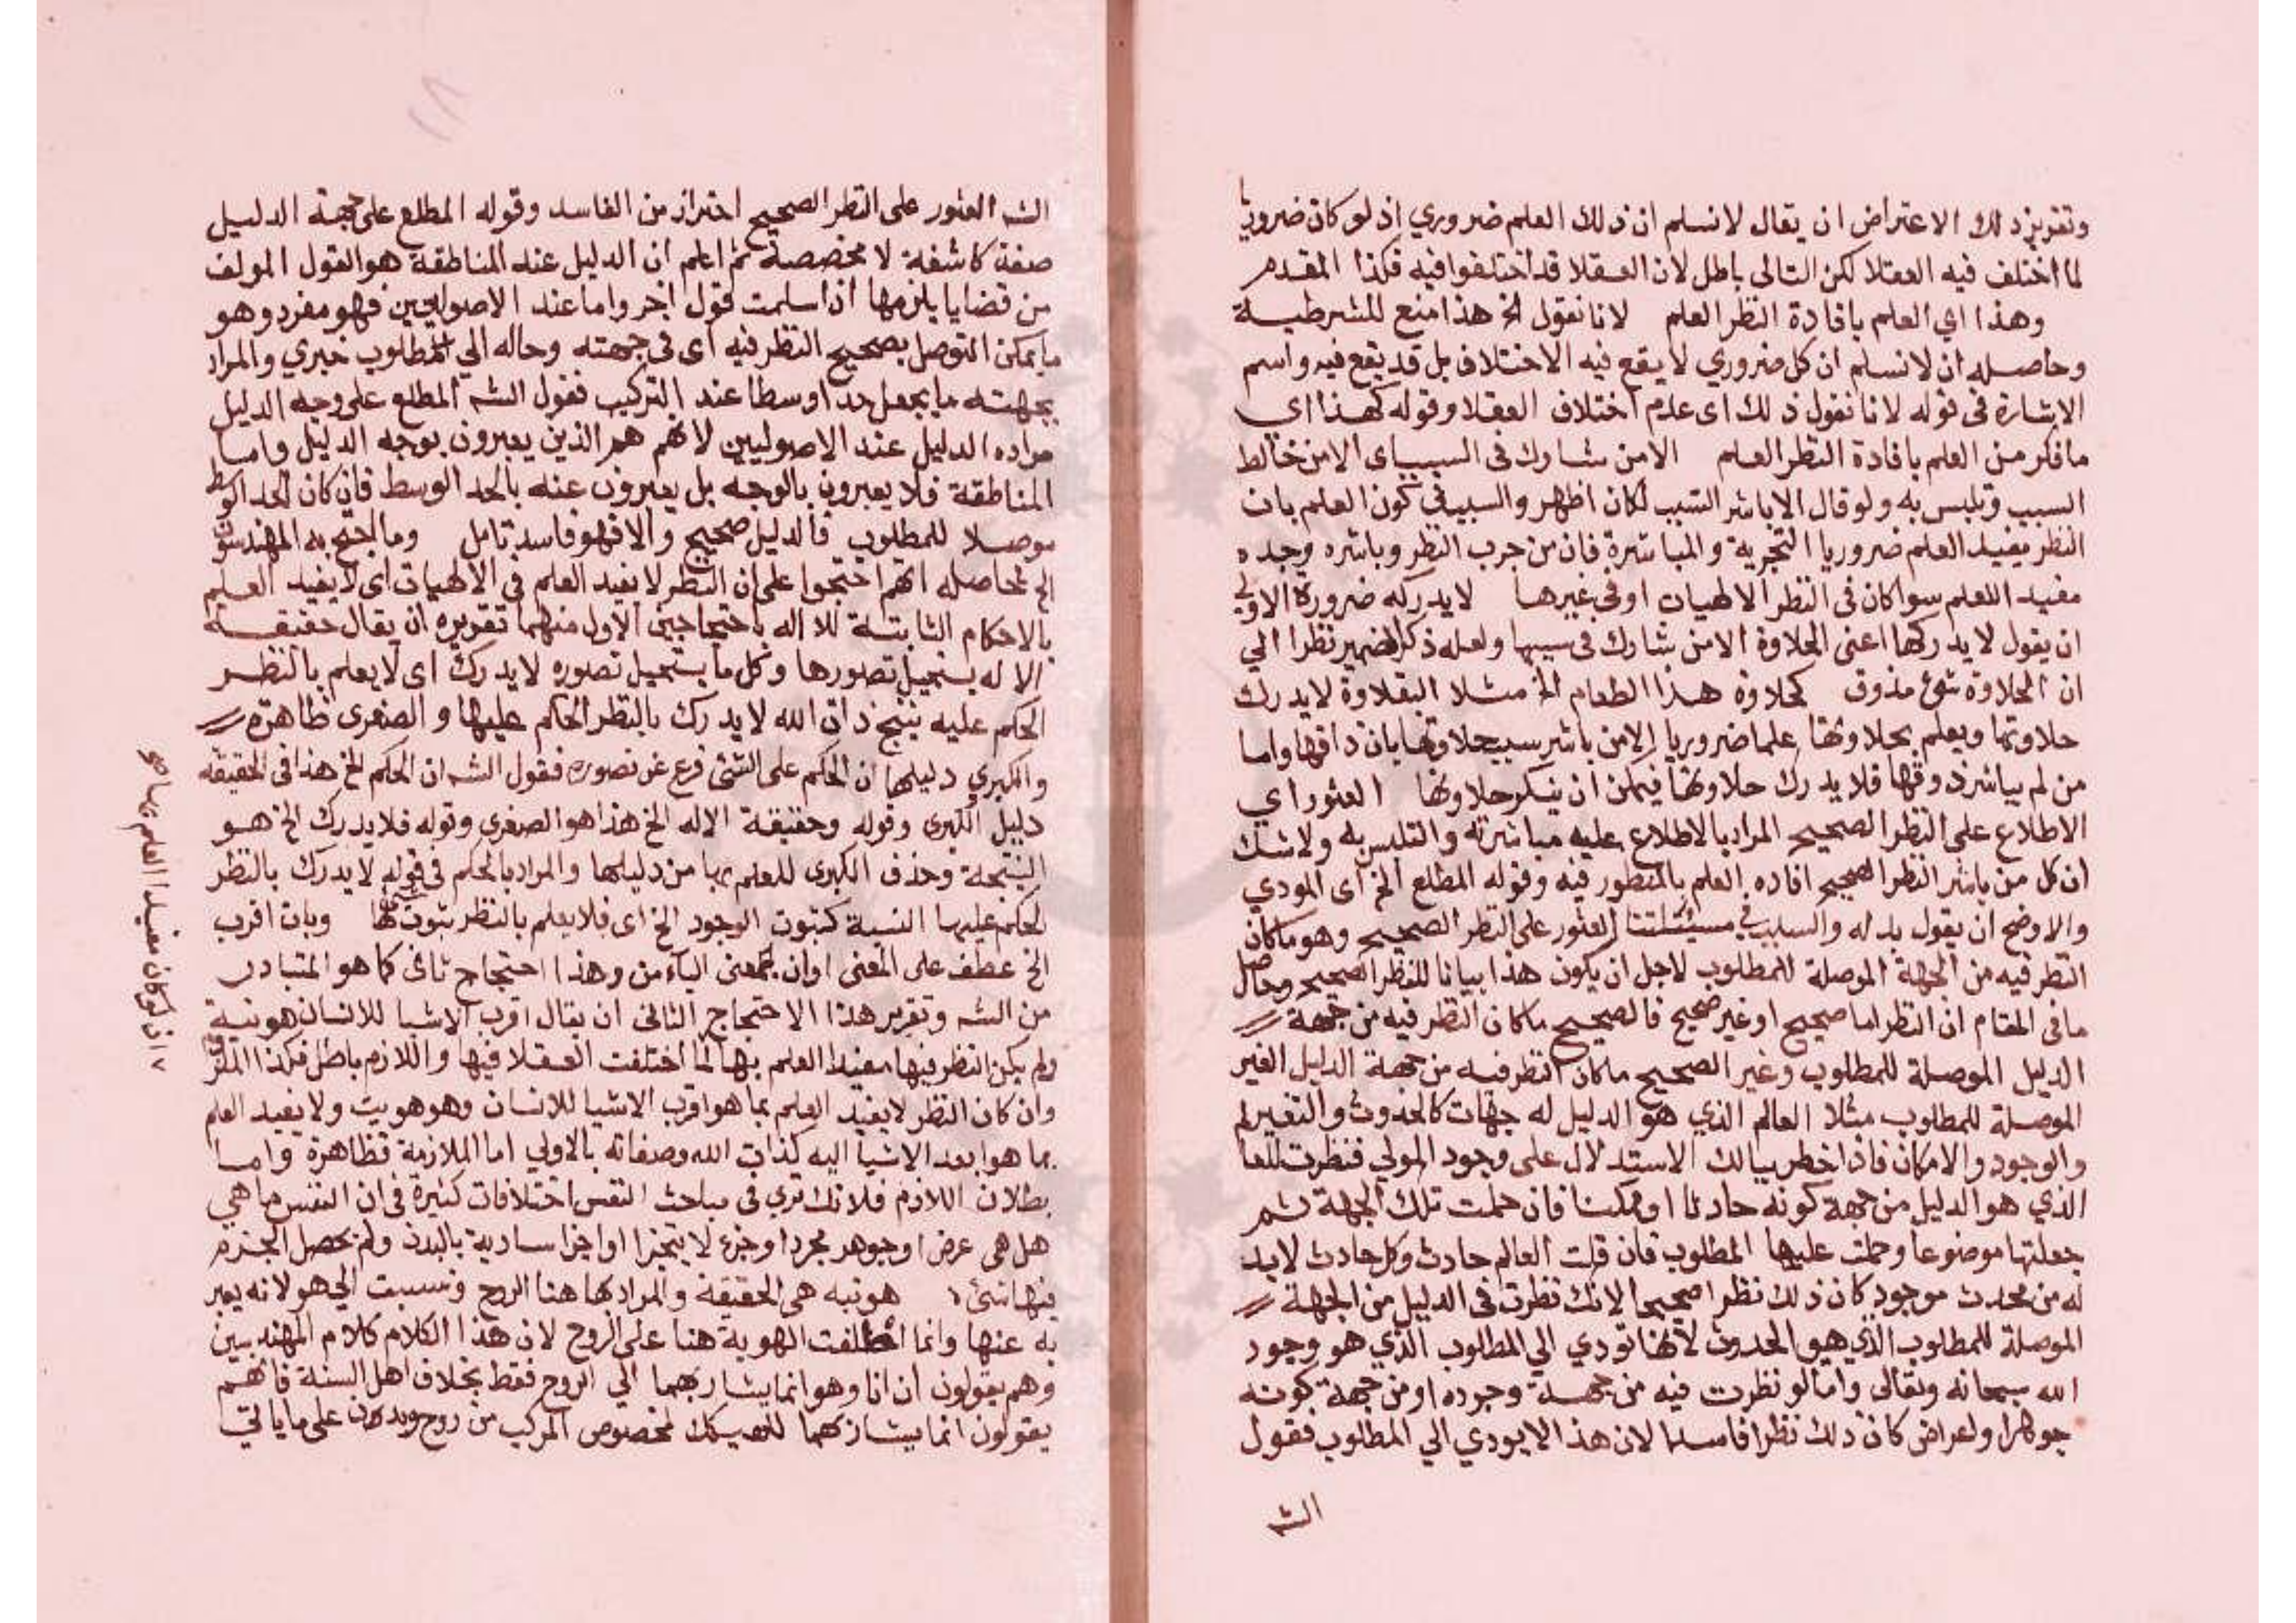 وتقرير ذلك الاعتراض ان يقال لانسلم ان ذلك العلم ضروري اذ لو كان ضروريا
لما اختلف فيه العقلا لكن التالى باطل لان العقلا قد اختلفوا فيه فكذا المقدم
وهذا اي العلم بافادة النظر العلم لانا نقول الخ هذا منع للشرطية
وحاصله ان لانسلم ان كل ضروري لا يقع فيه الاختلاف بل قد يقع فيه واسم
الاشارة فى قوله لانا نقول ذلك اى عدم اختلاف العقلا وقوله كهذا اي
ماذكر من العلم بافادة النظر العلم الامن شارك فى السبب اى الامن خالط
السبب وتلبس به ولو قال الاباشر السبب لكان اظهر والسبب فى كون العلم بان
النظر يفيد العلم ضروريا التجربة والمباشرة فان من جرب النظر وباشره وجده
مفيد اللعلم سوا كان فى النظر الالهيات اوفى غيرها لايدركه ضرورة الاولى
ان يقول لايدركها اعنى الحلاوة الامن شارك فى سببها ولعله ذكر الضمير نظرا الي
ان الحلاوة شئ مذوق كحلاوة هذا الطعام الخ مثلا البقلاوة لايدرك
حلاوتها ويعلم بحلاوتها علما ضروريا الامن باشر سبب حلاوتها بان ذاقها واما
من لم يباشر ذوقها فلا يدرك حلاوتها فيمكن ان ينكر حلاوتها العثور اي
الاطلاع على النظر الصحيح المراد بالاطلاع عليه مباشرته والتلبس به ولاشك
ان كل من باشر النظر الصحيح افاده العلم بالمنظور فيه وقوله المطلع الخ اى المودي
والاوضح ان يقول بدله والسبب فى مسئلتنا العثور على النظر الصحيح وهو ماكان
النظر فيه من الجهة الموصلة للمطلوب لاجل ان يكون هذا بيانا للنظر الصحيح وحاصل
مافى المقام ان النظر اما صحيح او غير صحيح فالصحيح ماكان النظر فيه من جهة
الدليل الموصلة للمطلوب وغير الصحيح ماكان النظر فيه من جهة الدليل الغير
الموصلة للمطلوب مثلا العالم الذي هو الدليل له جهات كالحدوث والتغير لم
والوجود والامكان فاذا خطر ببالك الاستدلال على وجود المولي فنظرت للعا
الذي هو الدليل من جهة كونه حادثا او ممكنا فان حملت تلك الجهة ثم
جعلتها موضوعا وحملت عليها المطلوب فان قلت العالم حادث وكل حادث لابد
له من محدث موجود كان ذلك نظرا صحيحا لانك نظرت فى الدليل من الجهة
الموصلة للمطلوب الذي هو الحدوث لانها تودي الي المطلوب الذي هو وجود
الله سبحانه وتعالى واما لو نظرت فيه من جهة وجوده او من جهة كونه
جوهرا ولعراض كان ذلك نظرا فاسدا لان هذا لايودي الي المطلوب فقول
الش
الش العثور على النظر الصحيح احتراز من الفاسد وقوله المطلع على جهة الدليل
صفة كاشفة لا مخصصة ثم اعلم ان الدليل عند المناطقة هو القول المولف
من قضايا يلزمها اذا سلمت قول اخر واما عند الاصوليين فهو مفرد وهو
مايمكن التوصل بصحيح النظر فيه اى فى جهته وحاله الي مطلوب خبري والمراد
بجهته مايجعل حدا وسطا عند التركيب فقول الش المطلع على وجه الدليل
مراده الدليل عند الاصوليين لانهم هم الذين يعبرون بوجه الدليل واما
المناطقة فلا يعبرون بالوجه بل يعبرون عنه بالحد الوسط فان كان الحد الوسط
موصلا للمطلوب فالدليل صحيح والا فهو فاسد تامل وما احتج به المهندسون
الخ محاصله انهم احتجوا على ان النظر لايفيد العلم فى الالهيات اى لايفيد العلم
بالاحكام الثابتة للاله باحتجاجين الاول منهما تقريره ان يقال حقيقة
الاله يستحيل تصورها وكل ما يستحيل تصوره لايدرك اى لايعلم بالنظر
الحكم عليه ينتج ذات الله لايدرك بالنظر الحكم عليها والصغرى ظاهرة
والكبري دليلها ان الحكم على الشئ فرع عن تصوره فقول الش ان الحكم الخ هذا فى الحقيقة
دليل الكبرى وقوله وحقيقة الاله الخ هذا هو الصغرى وقوله فلايدرك الخ هو
النتيجة وحذف الكبرى للعلم بها من دليلها والمراد بالحكم فى قوله لايدرك بالنظر
الحكم عليها النسبة كثبوت الوجود الخ اى فلايعلم بالنظر ثبوت لها وبان اقرب
الخ عطف على المعنى اوان بمعنى الباء من وهذا احتجاج ثانى كما هو المتبادر
من الش وتقرير هذا الاحتجاج الثانى ان يقال اقرب الاشيا للانسان هويته
ولم يكن النظر فيها مفيد العلم بها لما اختلفت العقلا فيها واللازم باطل فكذا الملزوم
وان كان النظر لايفيد العلم بما هو اقرب الاشيا للانسان وهو هويت ولايفيد العلم
بما هو ابعد الاشيا اليه كذات الله وصفاته بالاولي اما الملازمة فظاهرة واما
بطلان اللازم فلانك تري فى مباحث النفس اختلافات كثيرة فى ان النفس ماهي
هل هى عرض او جوهر مجرد او جزء لايتجزا او اجزا سارية بالبدن ولم يحصل الجزم
فيها بشئ هويته هى الحقيقة والمراد بها هنا الروح ونسبت الي هو لانه يعبر
به عنها وانما اطلقت الهوية هنا على الروح لان هذا الكلام كلام المهندسين
وهم يقولون ان انا وهو انما يشار بهما الي الروح فقط بخلاف اهل السنة فانهم
يقولون انما يشار بهما للهيكل المخصوص المركب من روح وبدن على ماياتي
اذ لو كان مفيدا العلم بها صح